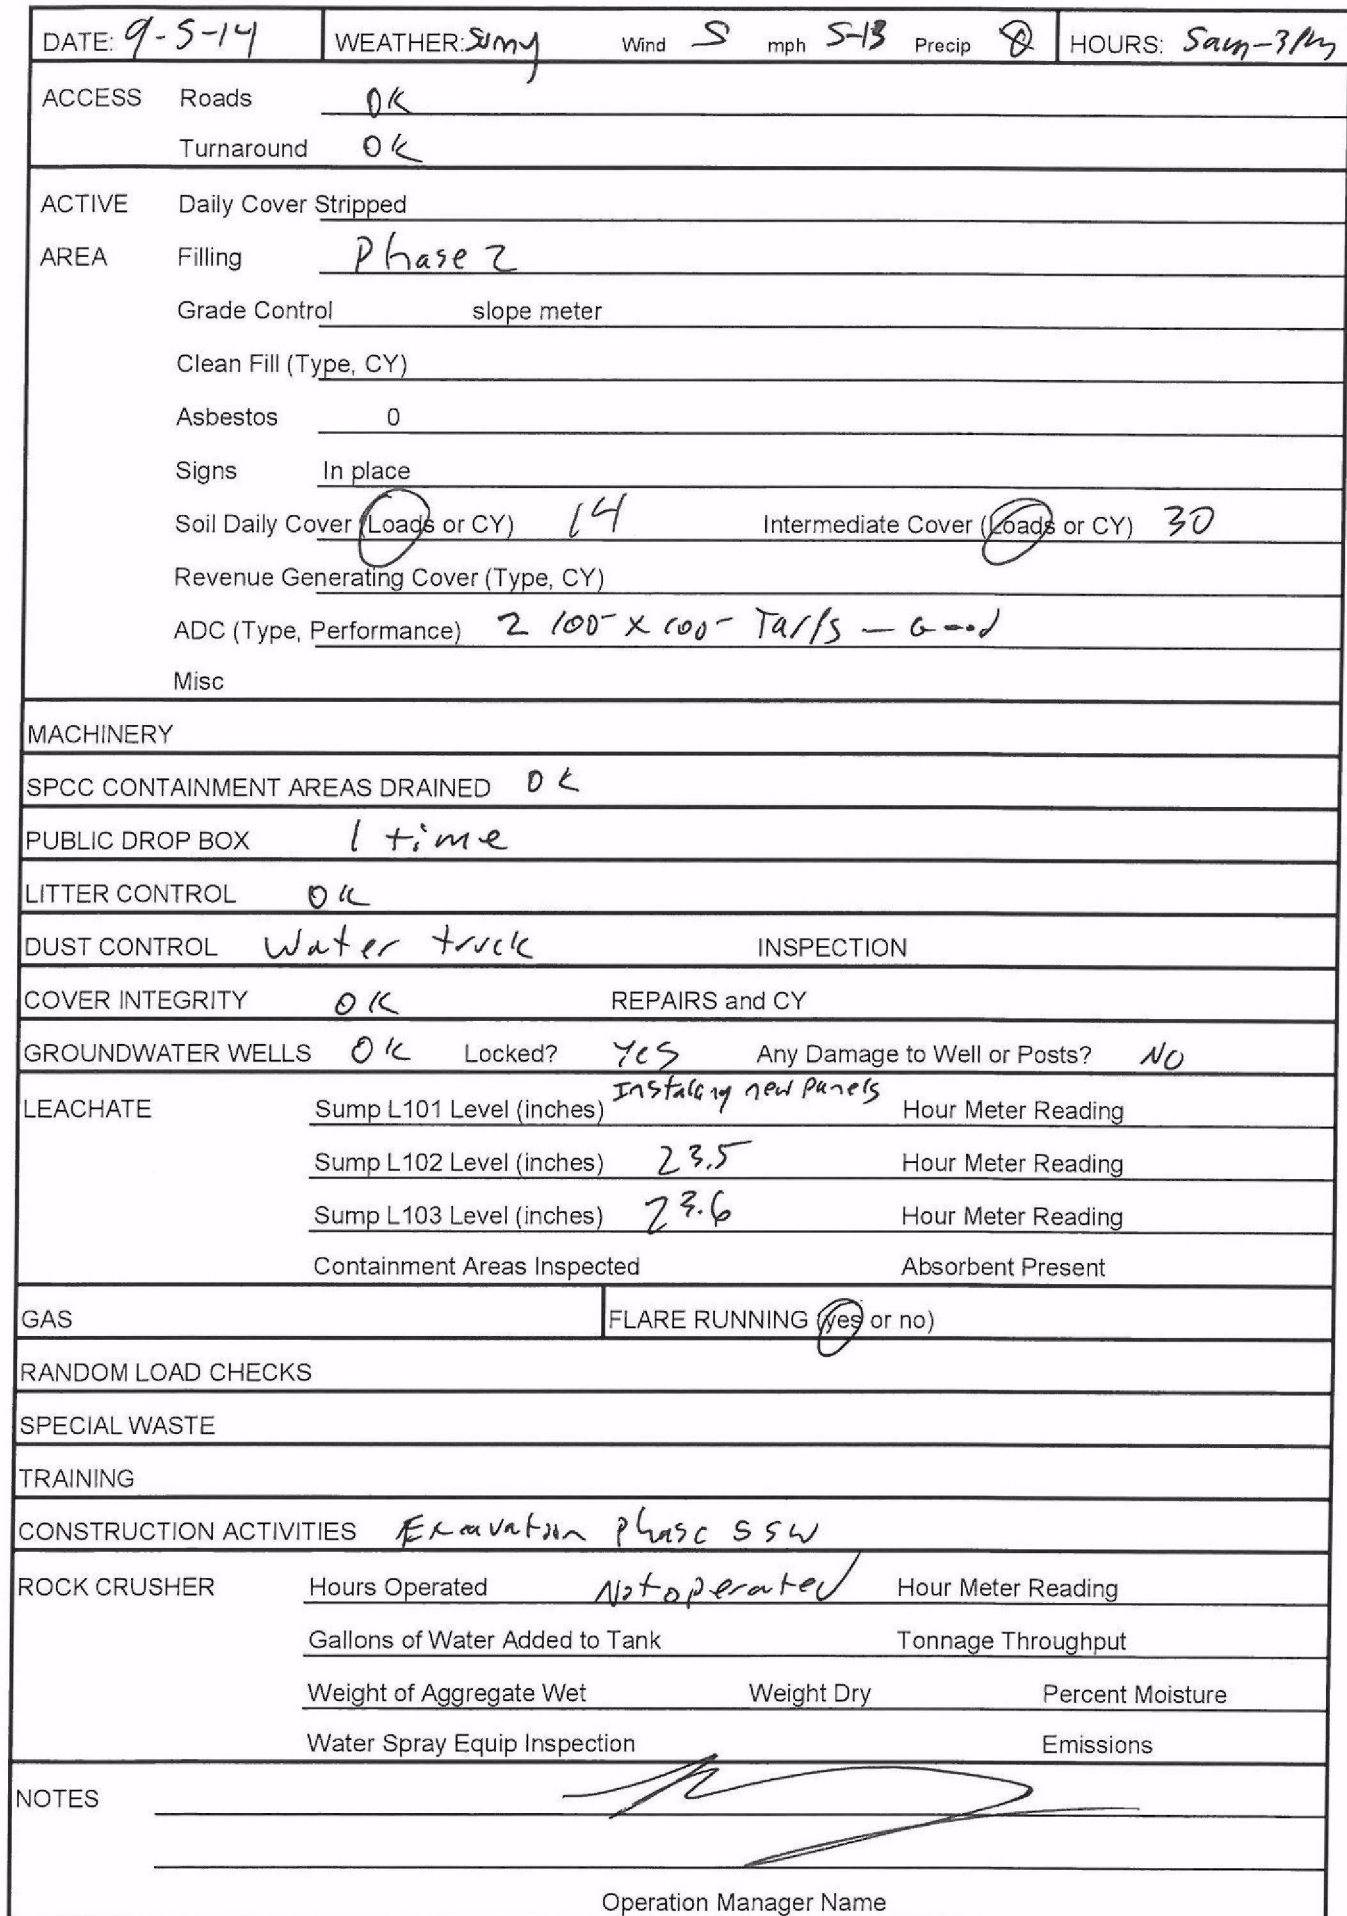 DATE: 9-5-14 WEATHER: Sunny Wind S mph 5-13 Precip 0 HOURS: 5am-3pm
ACCESS Roads OK
Turnaround OK
ACTIVE Daily Cover Stripped
AREA Filling Phase 2
Grade Control slope meter
Clean Fill (Type, CY)
Asbestos 0
Signs In place
Soil Daily Cover (Loads or CY) 14 Intermediate Cover (Loads or CY) 30
Revenue Generating Cover (Type, CY)
ADC (Type, Performance) 2 100- x 100- Tarps - Good
Misc
MACHINERY
SPCC CONTAINMENT AREAS DRAINED OK
PUBLIC DROP BOX 1 time
LITTER CONTROL OK
DUST CONTROL Water truck INSPECTION
COVER INTEGRITY OK REPAIRS and CY
GROUNDWATER WELLS OK Locked? Yes Any Damage to Well or Posts? NO
LEACHATE Sump L101 Level (inches) Installing new panels Hour Meter Reading
Sump L102 Level (inches) 23.5 Hour Meter Reading
Sump L103 Level (inches) 23.6 Hour Meter Reading
Containment Areas Inspected Absorbent Present
GAS FLARE RUNNING (yes or no)
RANDOM LOAD CHECKS
SPECIAL WASTE
TRAINING
CONSTRUCTION ACTIVITIES Excavation Phase 5SW
ROCK CRUSHER Hours Operated Not operated Hour Meter Reading
Gallons of Water Added to Tank Tonnage Throughput
Weight of Aggregate Wet Weight Dry Percent Moisture
Water Spray Equip Inspection Emissions
NOTES
Operation Manager Name